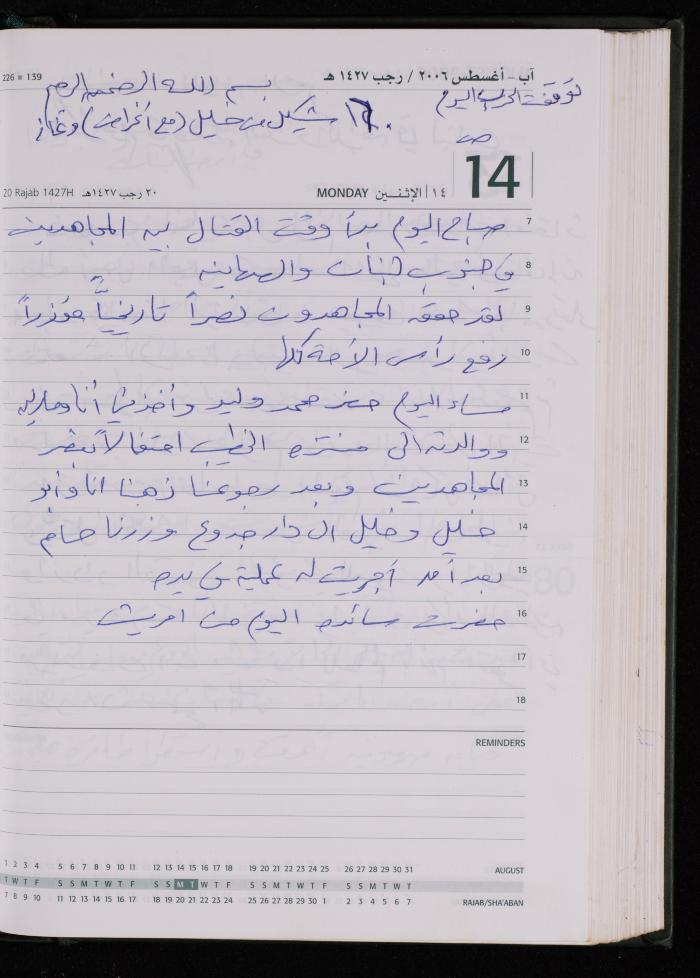 226 = 139
آب - أغسطس ٢٠٠٦ / رجب ١٤٢٧ هـ
بسم الله الرحمن الرحيم
توقفت الحرب اليوم
شيكل من خليل (مع أغراض) وغاز
20 Rajab 1427H ٢٠ رجب ١٤٢٧هـ MONDAY ١٤ | الإثنين 14
7 صباح اليوم بدأ وقف القتال بين المجاهدين
8 في جنوب لبنان والصهاينه
9 لقد حقق المجاهدون نصراً تاريخياً مؤزراً
10 رفع رأس الأمة كلها
11 مساء اليوم حضر محمد وليد وأخذني أنا
12 ووالدته الى منتزه احتفالاً بنصر
13 المجاهدين وبعد رجوعنا ذهبنا انا وأبو
14 خليل وخليل الى دار جدوع وزرنا حسام
15 بعد أن أجريت له عملية في يده
16 حضرت سائده اليوم من
17
18
REMINDERS
1 2 3 4 5 6 7 8 9 10 11 12 13 14 15 16 17 18 19 20 21 22 23 24 25 26 27 28 29 30 31 AUGUST
T W T F S S M T W T F S S M T W T F S S M T W T F S S M T W T
7 8 9 10 11 12 13 14 15 16 17 18 19 20 21 22 23 24 25 26 27 28 29 30 1 2 3 4 5 6 7 RAJAB/SHA'ABAN